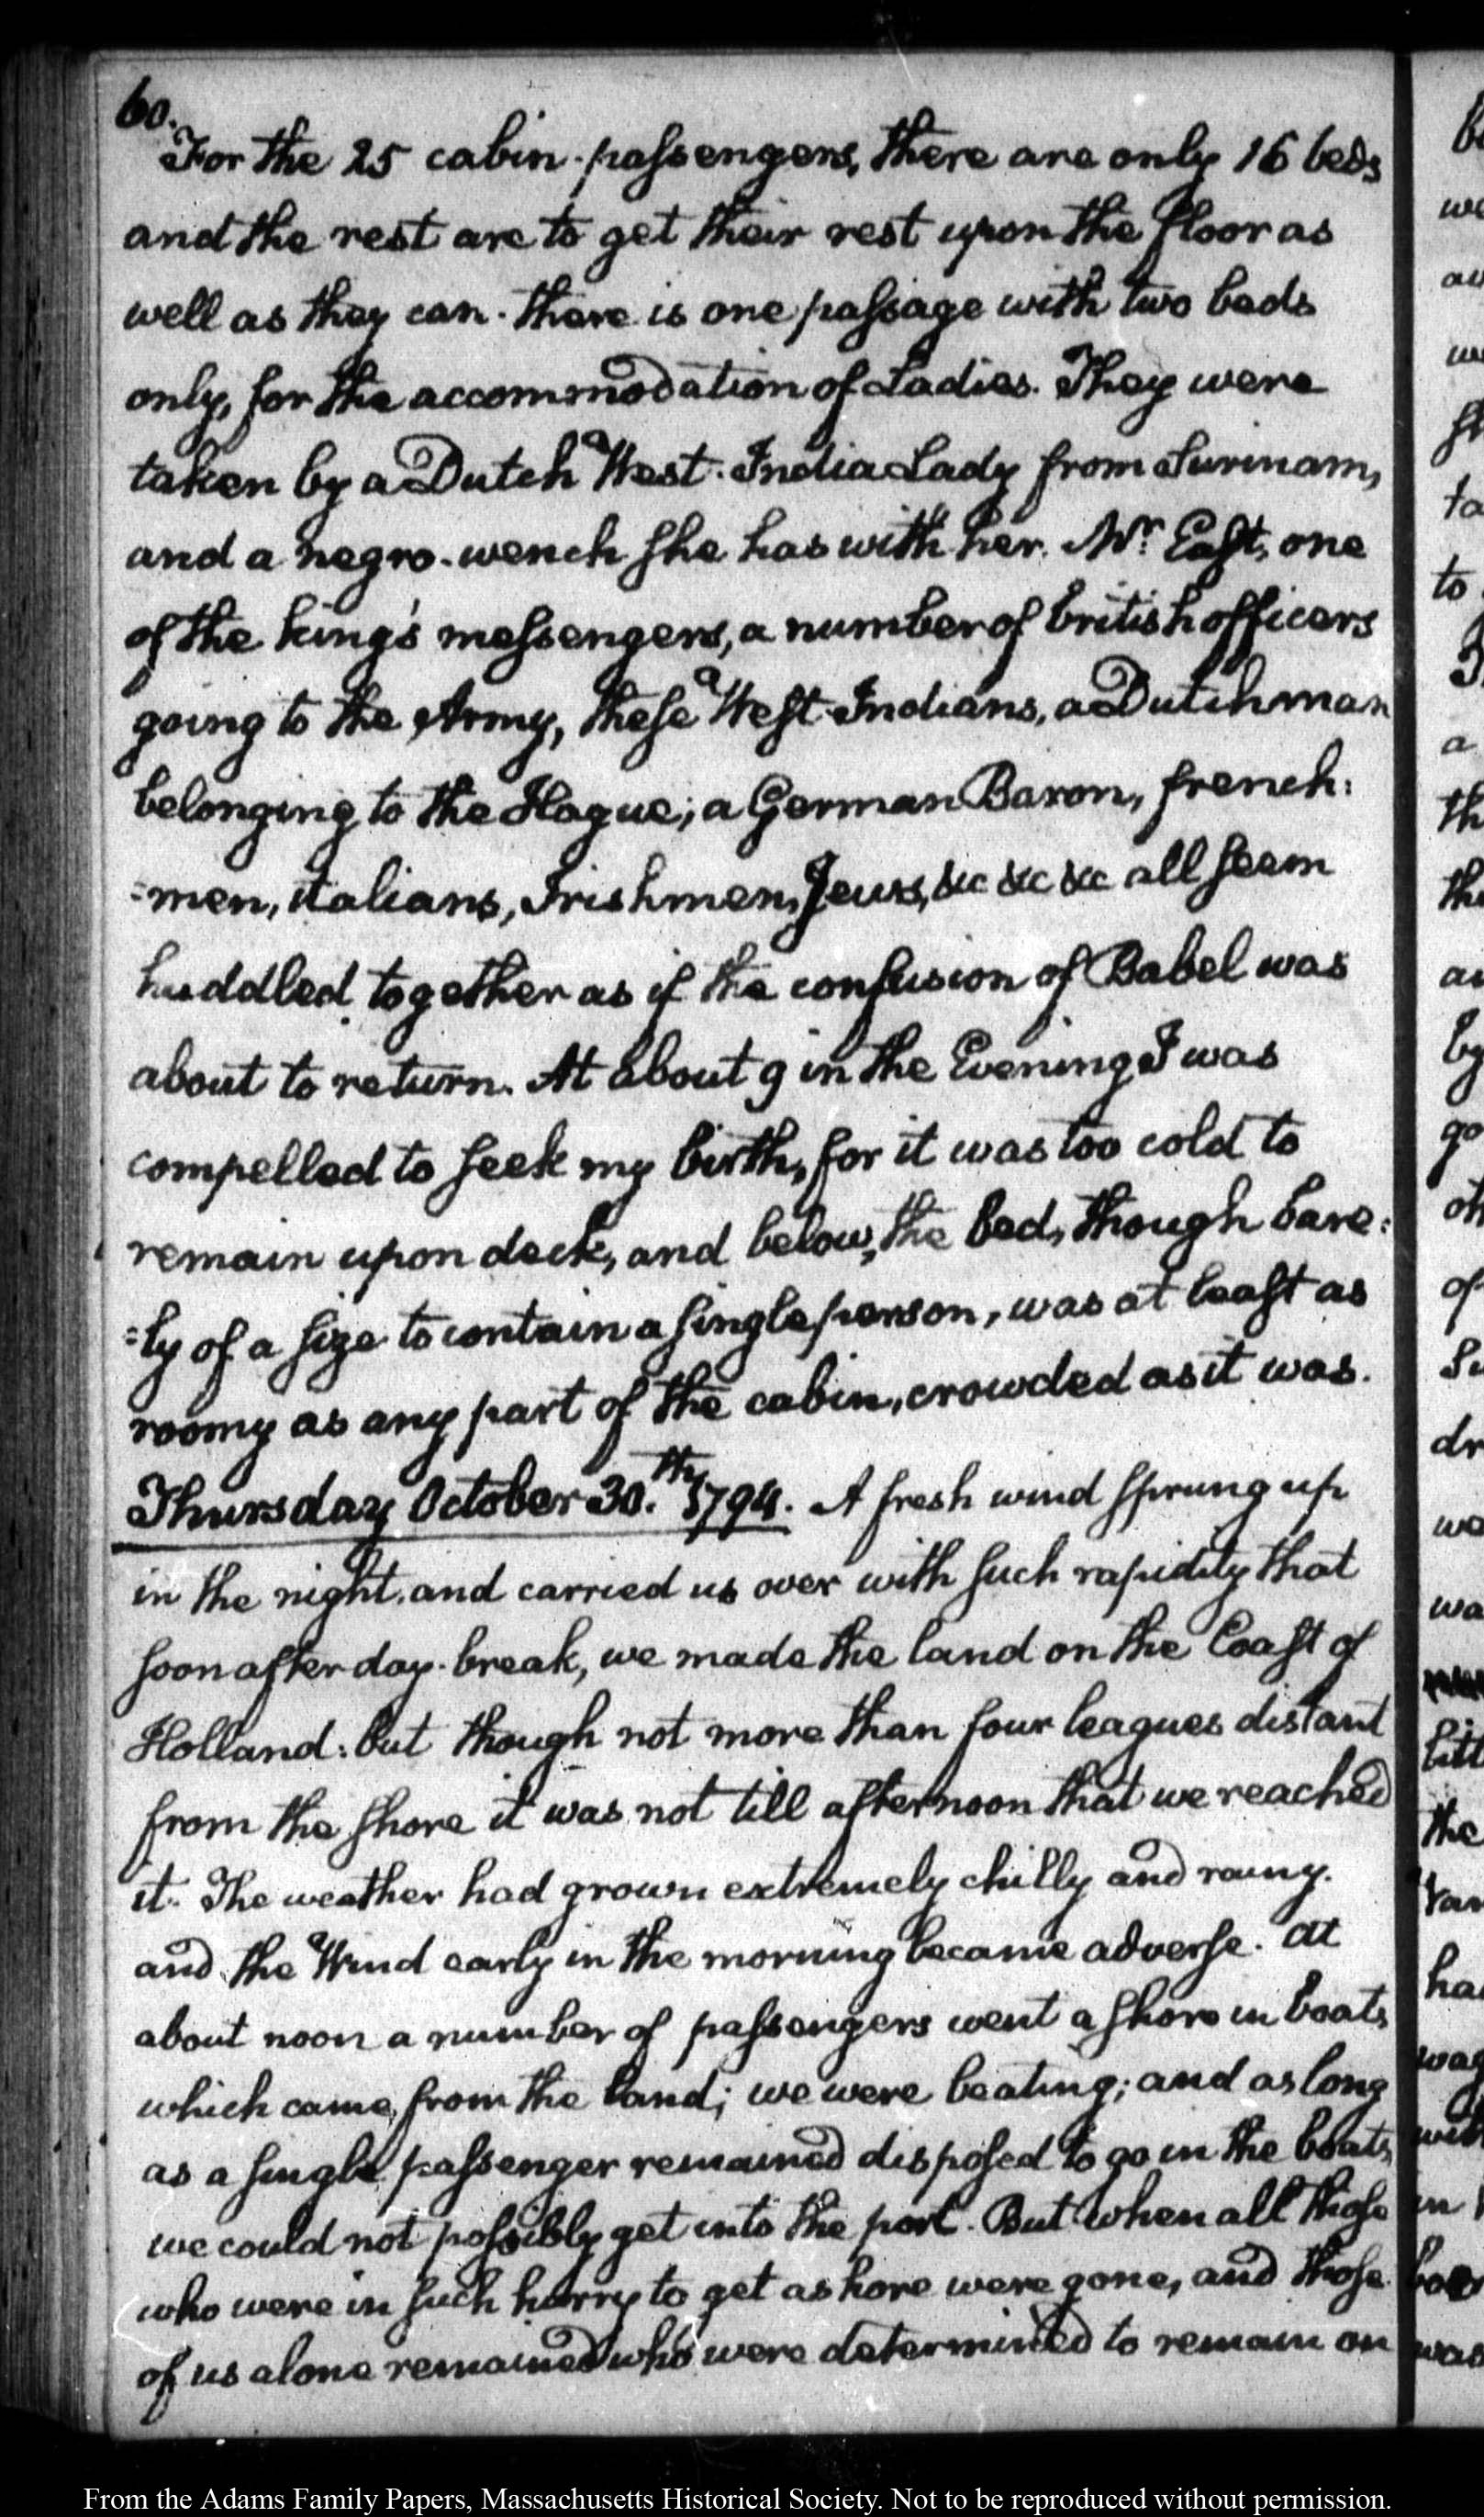 60.
For the 25 cabin-passengers, there are only 16 beds
and the rest are to get their rest upon the floor as
well as they can. there is one passage with two beds
only, for the accommodation of Ladies. They were
taken by a Dutch West-India Lady from Surinam,
and a negro-wench she has with her. Mr. East, one
of the king's messengers, a number of british officers
going to the Army, these West-Indians, a Dutchman
belonging to the Hague; a German Baron, french:
=men, italians, Irishmen, Jews, &c &c &c all seem
huddled together as if the confusion of Babel was
about to return. At about 9 in the Evening I was
compelled to seek my birth, for it was too cold to
remain upon deck, and below, the bed, though bare:
=ly of a size to contain a single person, was at least as
roomy as any part of the cabin, crowded as it was.
Thursday October 30.th 1794. A fresh wind sprung up
in the night, and carried us over with such rapidity that
soon after day-break, we made the land on the Coast of
Holland: but though not more than four leagues distant
from the shore it was not till afternoon that we reached
it. The weather had grown extremely chilly and rainy.
and the Wind early in the morning became adverse. At
about noon a number of passengers went ashore in boats
which came from the land; we were beating; and as long
as a single passenger remained disposed to go in the boats,
we could not possibly get into the port. But when all those
who were in such hurry to get ashore were gone, and those
of us alone remained who were determined to remain on
From the Adams Family Papers, Massachusetts Historical Society. Not to be reproduced without permission.